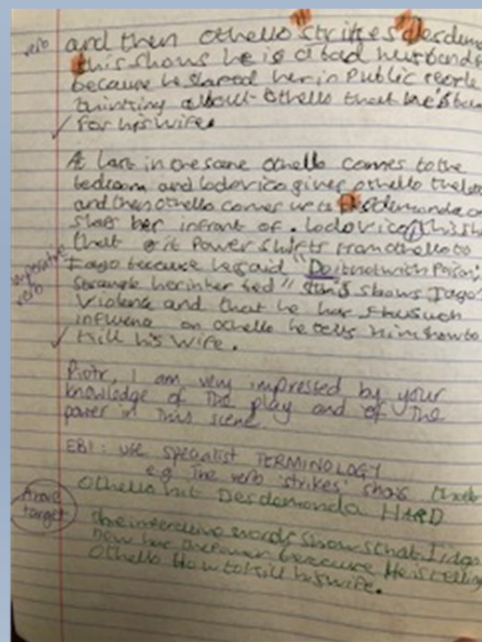 verb
and then Othello "strikes" desdem
this shows he is a bad husband
because he slaped her in Public People
thinking about Othello that he's
for his wife.
At last in the scene Othello comes to the
bedroom and lodovico gives othello the
and then othello comes up to Desdemonda
slaps her infront of. lodovico this sh
that it Power shifts from othello to
Iago because he said "Do it not with Poison,
imperative verb
strangle her in her bed" this shows Iago's
Violence and that he has
on othello he tells him how to
kill his wife.
Piotr, I am very impressed by your
knowledge of the play and of the
power in this scene
EBI: use specialist TERMINOLOGY
e.g The verb 'strikes' shows that
Othello hit Desdemonda HARD
target
the words shows that Iago
now has the Power because He is telling
Othello How to kill his wife.